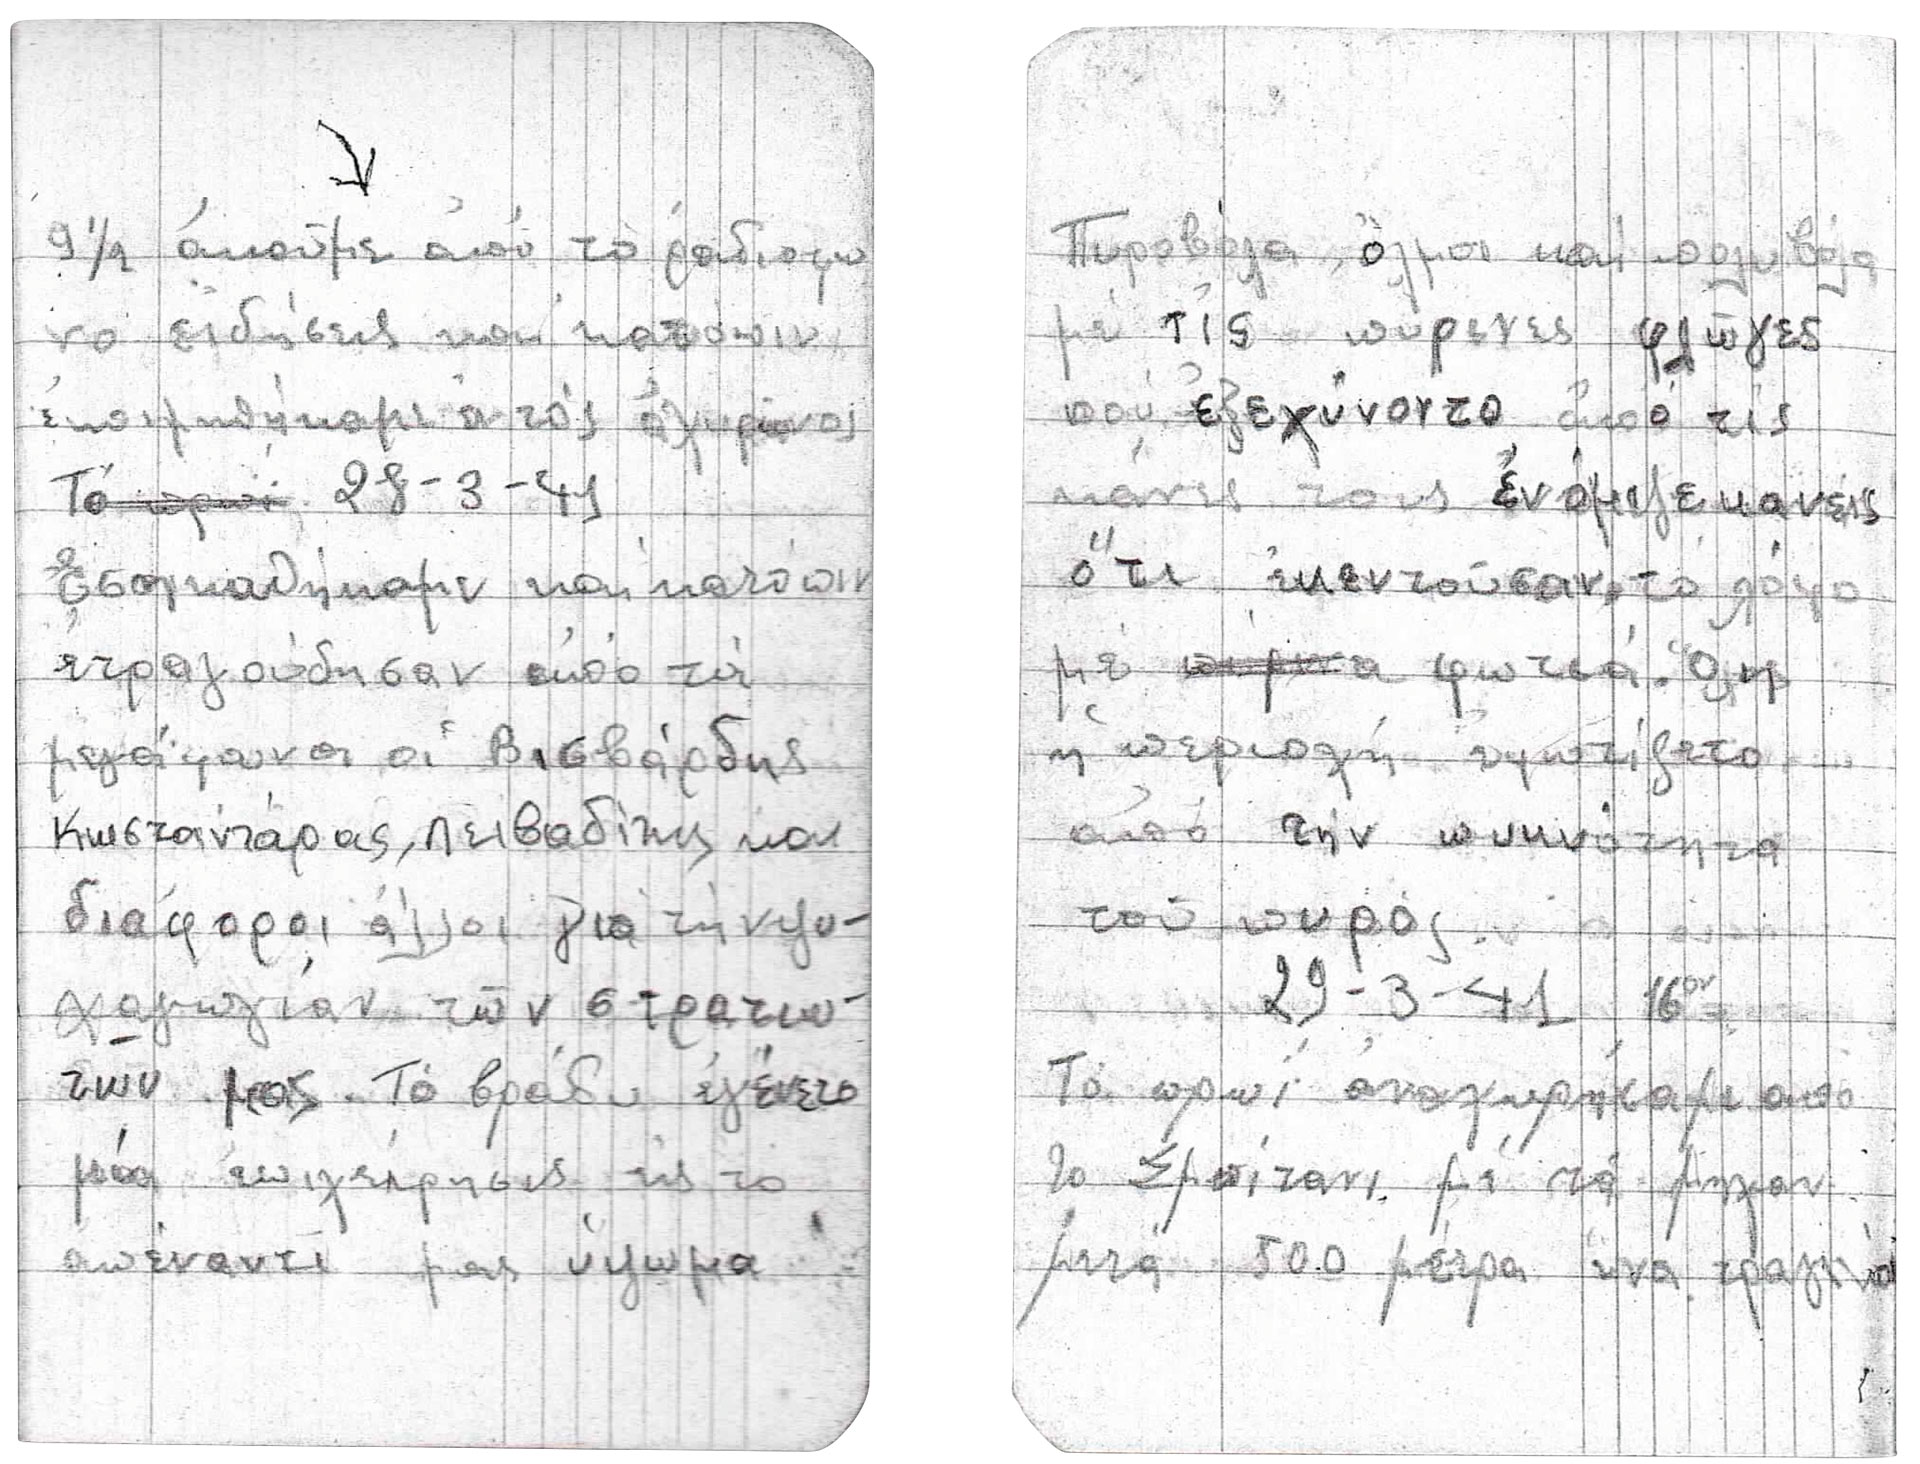 9½ ἀκοῦμε ἀπό τό ράδιοφω
νο εἰδήσεις καί κατόπιν
ἐκοιμηθήκαμε
Τό πρωί 28-3-41
Ἐσηκωθήκαμεν καί κατόπιν
ἐτραγούδησαν ἀπό τά
μεγάφωνα οἱ Βισβάρδης
Κωσταντάρας, Λειβαδίτης και
διάφοροι ἄλλοι γιά τήν ψυ-
χαγωγίαν τῶν στρατιω-
των μας. Τό βράδυ ἐγένετο
μία ἐπιχείρησις εἰς τό
ἀπέναντί μας ὕψωμα
Πυροβόλα, ὅλμοι καί πολυβόλα
μέ τίς πύρενες φλῶγες
πού ἐξεχύνοντο ἀπό τίς
κάνες τους ἐνόμιζε κανείς
ὅτι ἐκεντούσαν τό λόφο
μέ φωτιά. Ὅλη
ἡ περιοχή ἐφωτίζετο
ἀπό τήν πυκνότητα
τοῦ πυρός.
29-3-41 16ον
Τό πρωί ἀναχωρήσαμε απο
το Σμπίτανι μέ τά μηχαν
μετά 500 μέτρα ἕνα